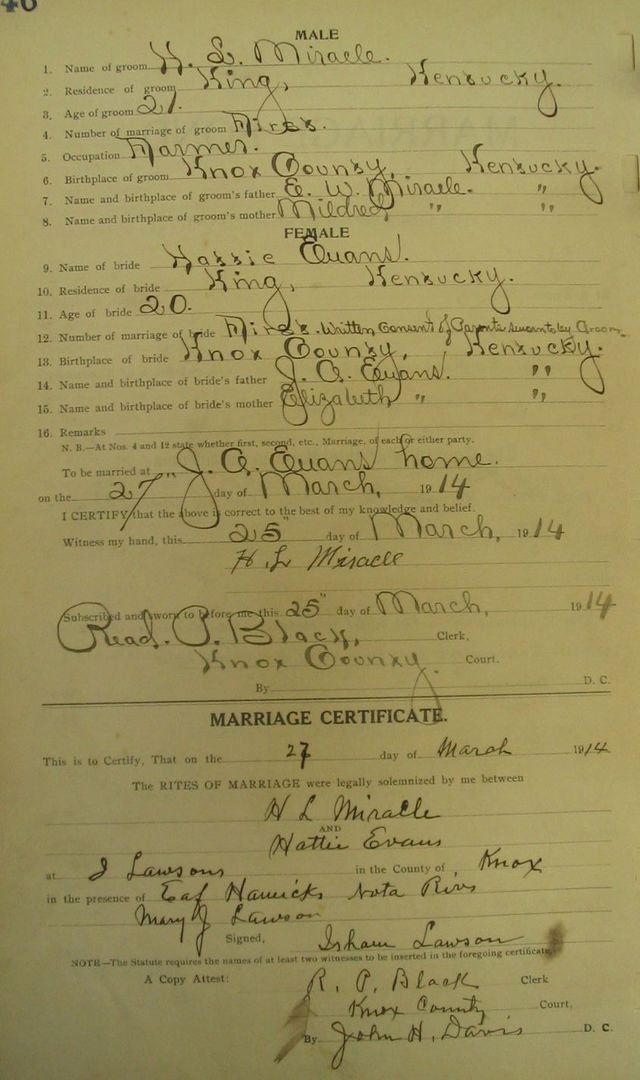 46
MALE
1. Name of groom H. L. Miracle.
2. Residence of groom King, Kentucky.
3. Age of groom 21.
4. Number of marriage of groom First.
5. Occupation Farmer.
6. Birthplace of groom Knox County, Kentucky.
7. Name and birthplace of groom's father E. W. Miracle. "
8. Name and birthplace of groom's mother Mildred " "
FEMALE
9. Name of bride Hattie Evans.
10. Residence of bride King, Kentucky.
11. Age of bride 20.
12. Number of marriage of bride First. Written Consent of Parents sworn to by Groom
13. Birthplace of bride Knox County, Kentucky.
14. Name and birthplace of bride's father J. A. Evans. "
15. Name and birthplace of bride's mother Elizabeth " "
16. Remarks
N. B.—At Nos. 4 and 12 state whether first, second, etc., Marriage, of each or either party.
To be married at J. A. Evans home.
on the 27 day of March, 1914
I CERTIFY that the above is correct to the best of my knowledge and belief.
Witness my hand, this 25" day of March, 1914
H. L Miracle
Subscribed and sworn to before me this 25" day of March, 1914
Read. P. Black, Clerk,
Knox County. Court.
By D. C.
MARRIAGE CERTIFICATE.
This is to Certify, That on the 27 day of March 1914
The RITES OF MARRIAGE were legally solemnized by me between
H L Miracle
AND
Hattie Evans
at I Lawsons in the County of Knox
in the presence of Hamicks Nota
Mary J Lawson
Signed, Isham Lawson
NOTE—The Statute requires the names of at least two witnesses to be inserted in the foregoing certificate.
A Copy Attest: R. P. Black Clerk
Knox County Court,
By John H. Davis D. C.